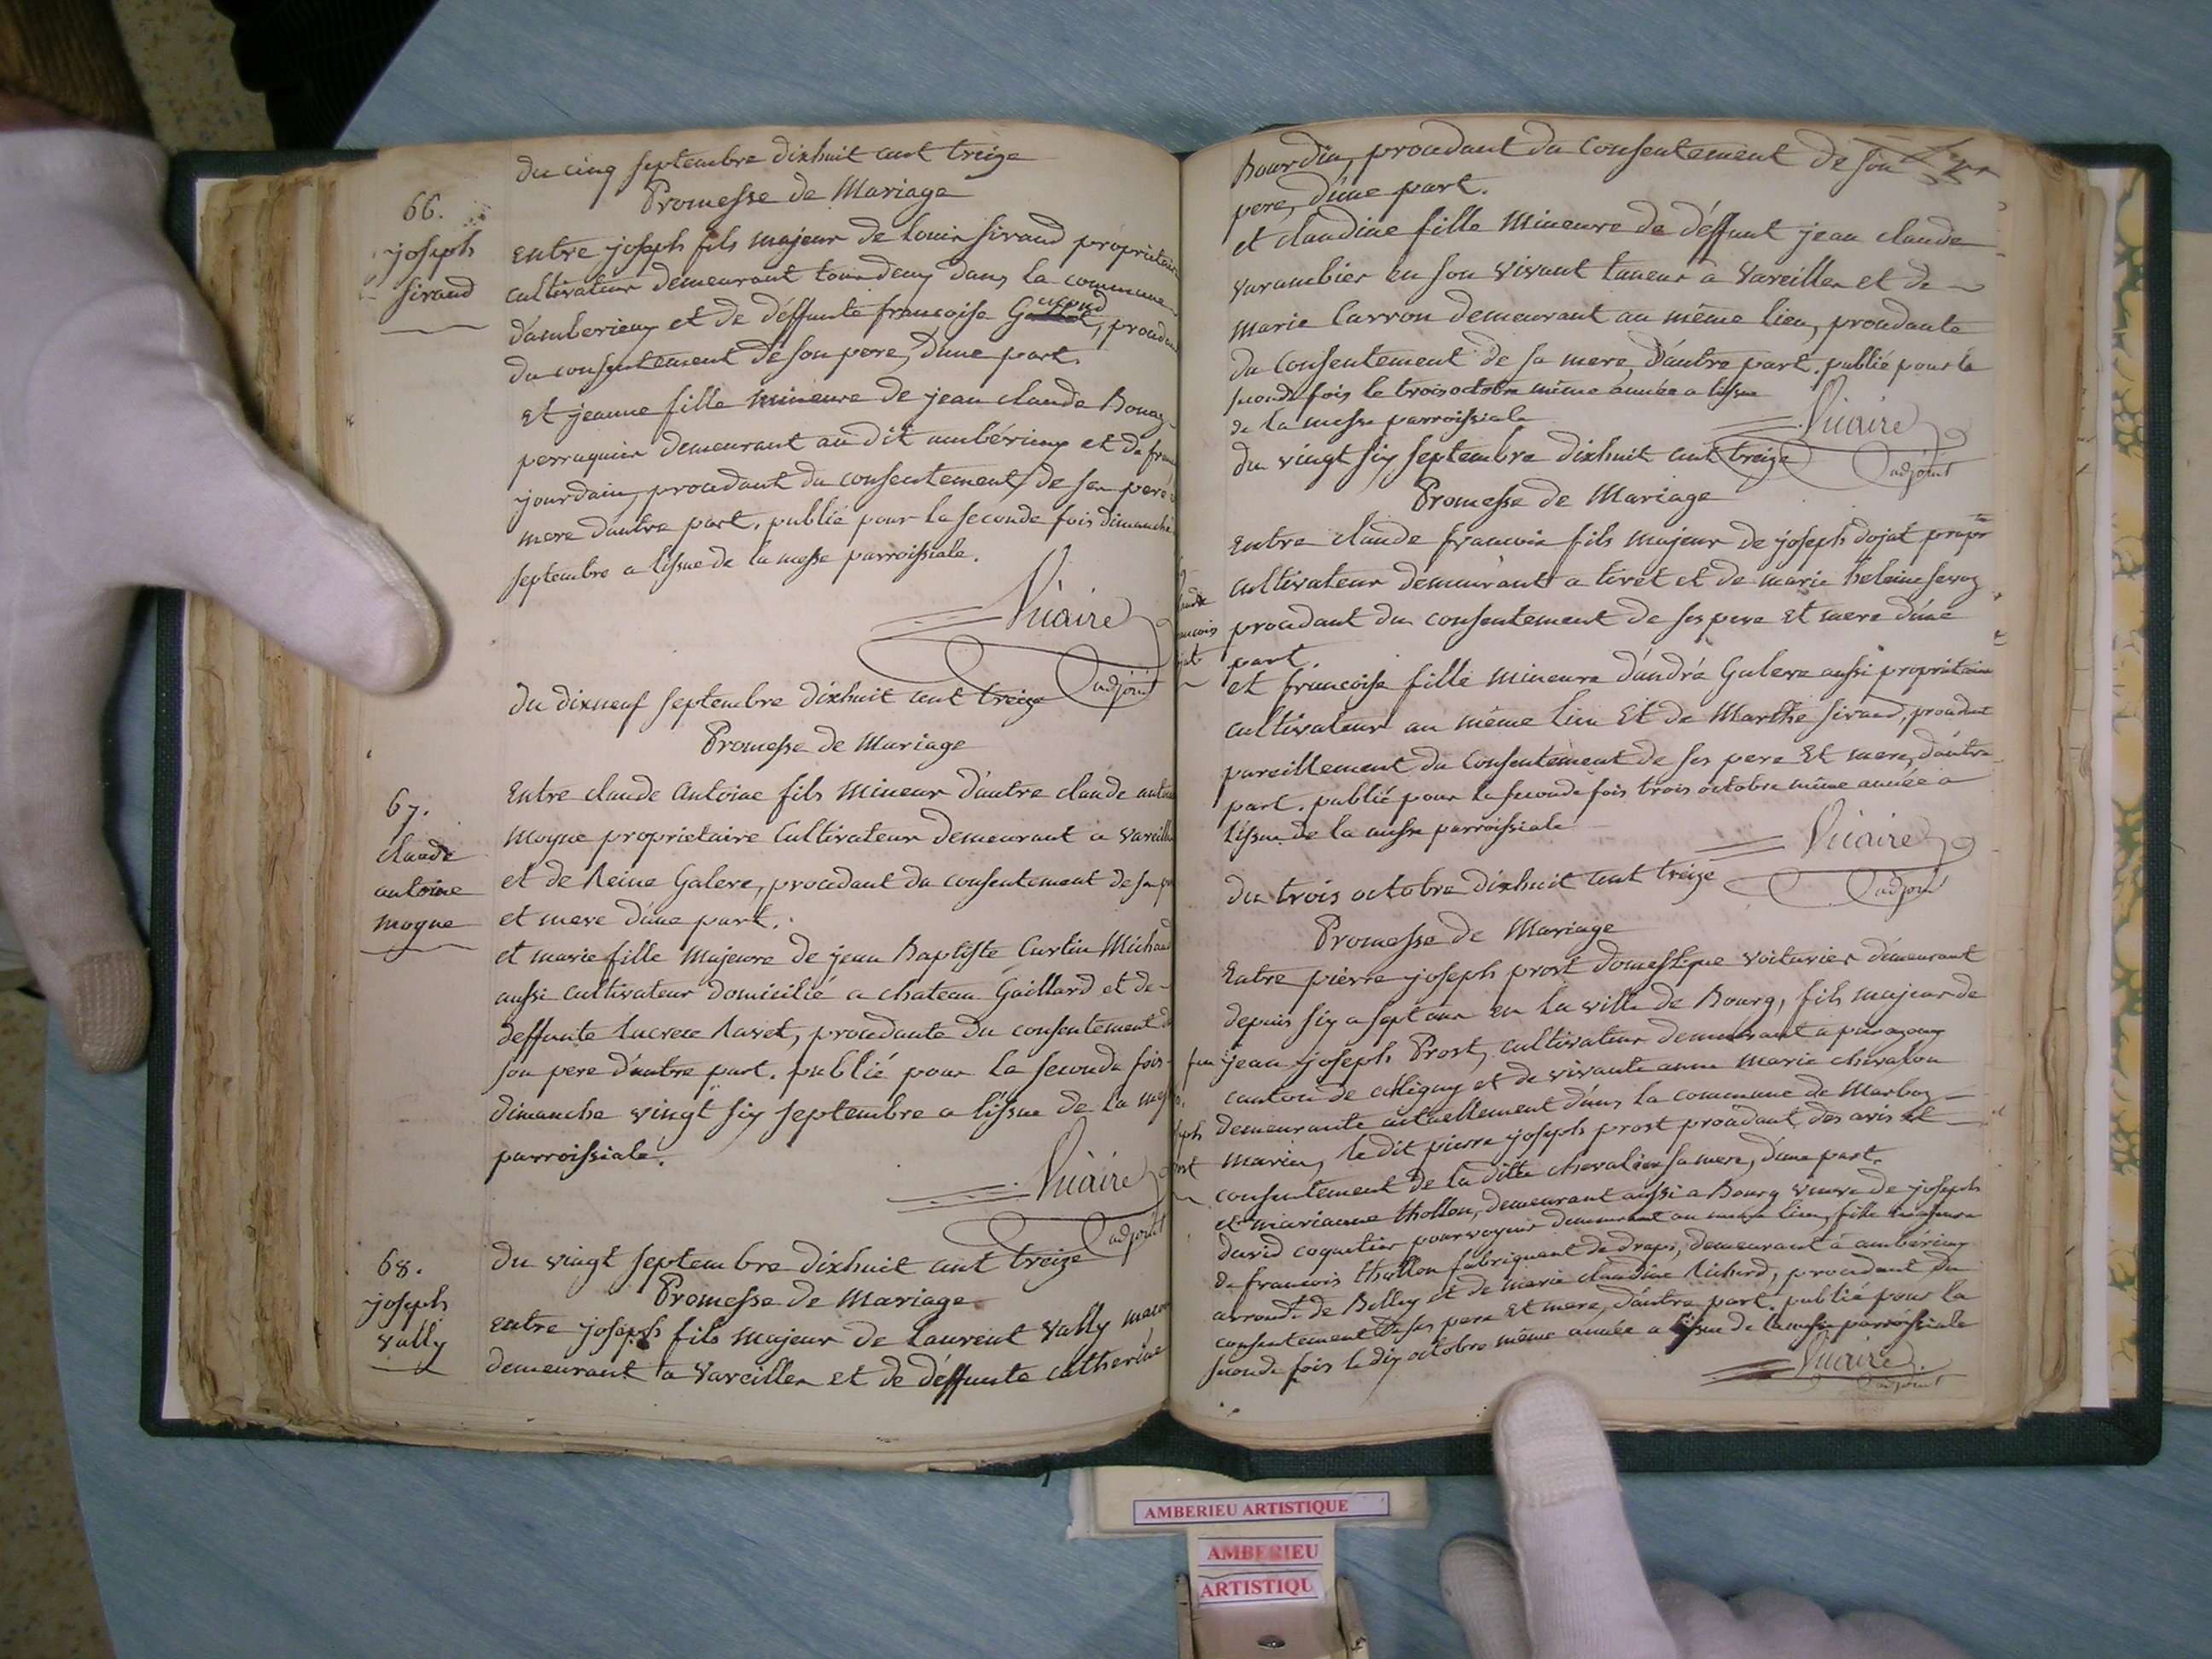 du cinq septembre dixhuit cent treize
Promesse de Mariage
66.
joseph
sirand
Entre joseph fils majeur de louis sirand proprietaire
cultivateur demeurant tour deny dans la commune
d'amberieuy et de déffunte francoise
du consentement de son pere, d'une part.
Et jeanne fille mineure de jean claude
perruquier demeurant au dit ambérieux et de
jourdain, procedant du consentement de ses pere
mere d'autre part. publié pour la seconde fois dimanche
septembre a l'issue de la messe parroissiale.
Vicaire
adjoint
du dixneuf septembre dixhuit cent treize
Promesse de Mariage
67.
claude
antoine
moyne
Entre claude Antoine fils mineur d'autre claude
moyne proprietaire Cultivateur demeurant a vareille
et de Reine Galere, procedant du consentement de
et mere d'une part.
et marie fille Majeure de jean Baptiste Curtin Michaud
aussi cultivateur domicilié a chateau Gaillard et de
deffunte Lucrece Ravet, procedante du consentement
son pere d'autre part. publié pour la seconde fois
dimanche vingt six septembre a l'issue de la
parroissiale.
Vicaire
adjoint
68.
joseph
vally
du vingt septembre dixhuit cent treize
Promesse de Mariage
entre joseph fils majeur de Laurent Vally
demeurant a Vareilles et de déffunte catherine
Bourdin, procedant du consentement de son
pere, d'une part.
et claudine fille Mineure de déffunt jean claude
varambier en son vivant taneur a Vareilles et de
marie Carron demeurant au même lieu, procedante
du consentement de sa mere, d'autre part. publié pour la
seconde fois le trois octobre même année a l'issue
de la messe parroissiale
Vicaire
adjoint
du vingt six septembre dixhuit cent treize
Promesse de Mariage
Entre claude francois fils majeur de joseph dojat propre
cultivateur demeurant a tiret et de marie heleine
procedant du consentement de ses pere et mere d'une
part.
et francoise fille mineure d'andré Galere aussi proprietaire
cultivateur au même lieu et de Marthe sirand, procedant
pareillement du Consentement de ses pere et mere, d'autre
part. publié pour la seconde fois trois octobre même année a
l'issue de la messe parroissiale
Vicaire
adjoint
du trois octobre dixhuit cent treize
Promesse de Mariage
Entre pierre joseph prost domestique voiturier démeurant
depuis six a sept ans en la ville de Bourg, fils majeur de
feu jean joseph Prost, cultivateur demeurant a
canton de coligny et de vivante anne marie chevalon
demeurante actuellement dans la commune de Marboz
le dit pierre joseph prost procedant des avis et
consentement de la ditte sa mere, d'une part.
et marianne thollon, demeurant aussi a Bourg veuve de joseph
david coquetier pourvoyeur demeurant au même lieu, fille majeure
de francois thollon fabriquant de draps, demeurant a ambérieuy
arrondt de Belley et de marie claudine Richerd, procedant du
consentement de ses pere et mere, d'autre part. publié pour la
seconde fois le dix octobre même année a l'issue de la messe parroissiale
Vicaire
adjoint
AMBERIEU ARTISTIQUE
AMBERIEU
ARTISTIQU